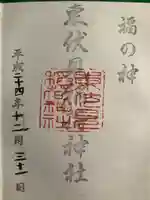 福の神
東伏見稲荷神社
平成二十四年十二月三十一日